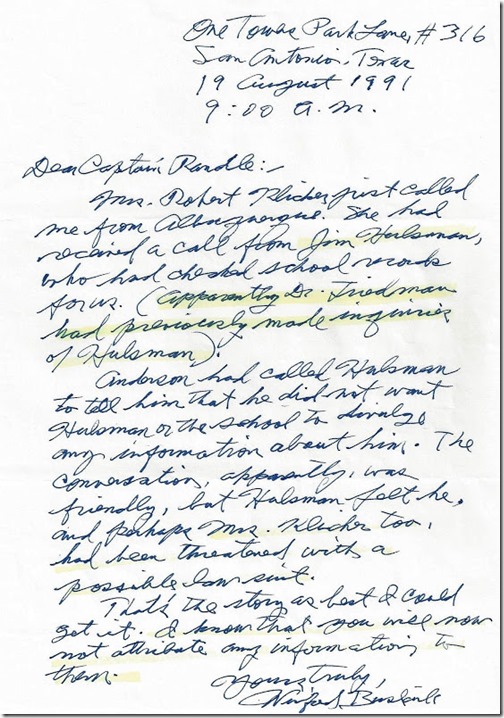 One Towers Park Lane, # 316
San Antonio, Texas
19 August 1991
9:00 A.M.
Dear Captain Randle:-
Mrs. Robert Klicker just called
me from Albuquerque. She had
received a call from Jim Hulsman,
who had checked school records
for us. (Apparently Dr. Friedman
had previously made inquiries
of Hulsman).
Anderson had called Hulsman
to tell him that he did not want
Hulsman or the school to divulge
any information about him. The
conversation, apparently, was
friendly, but Hulsman felt he,
and perhaps Mrs. Klicker too,
had been threatened with a
possible law suit.
That's the story as best I could
get it. I know that you will now
not attribute any information to
them.
Yours truly,
Winfred Buskirk